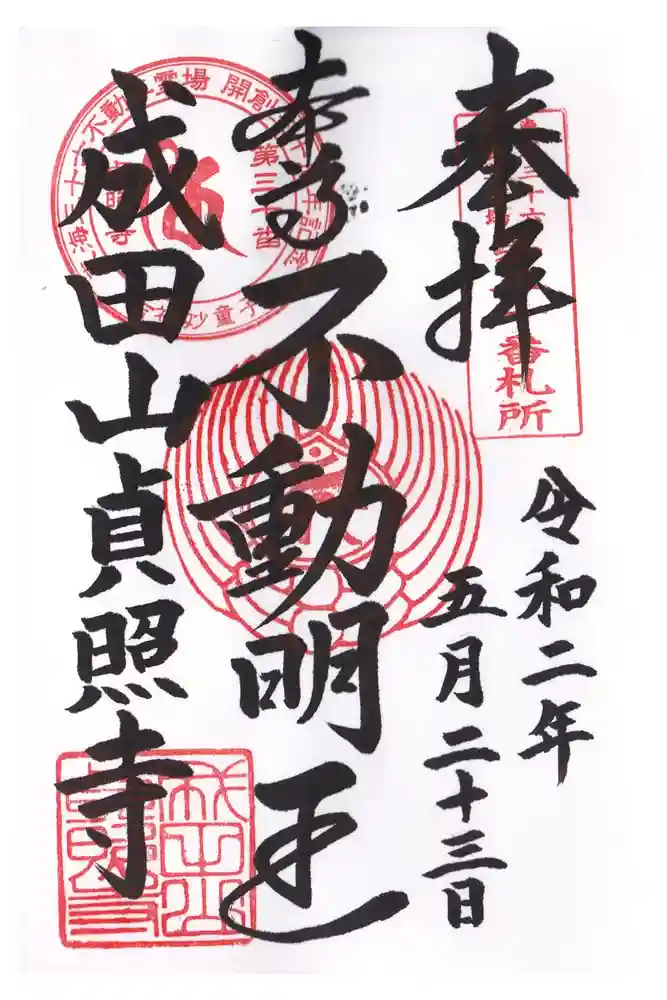 奉拝
三十六
番札所
令和二年
五月二十三日
本尊
不動明王
成田山貞照寺
不動
霊場 開創
第三十番
照寺
童子